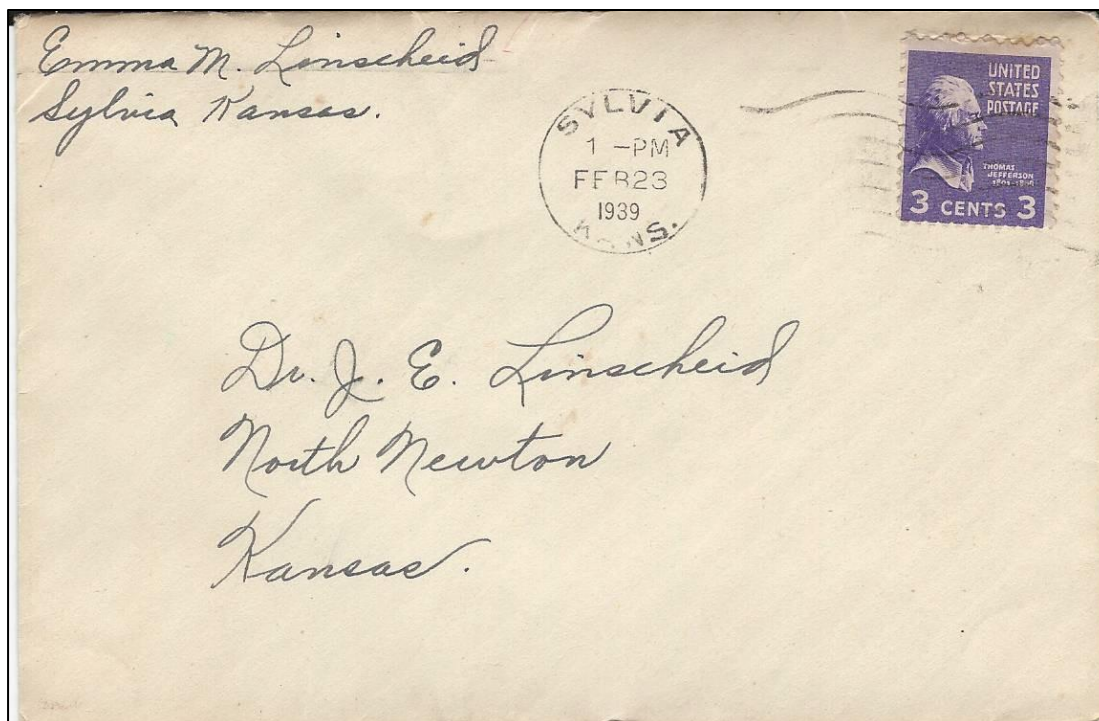 Emma M. Linscheid
Sylvia Kansas.
SYLVIA
1-PM
FEB23
1939
KANS.
UNITED
STATES
POSTAGE
THOMAS
JEFFERSON
1801-1809
3 CENTS 3
Dr. J. E. Linscheid
North Newton
Kansas.